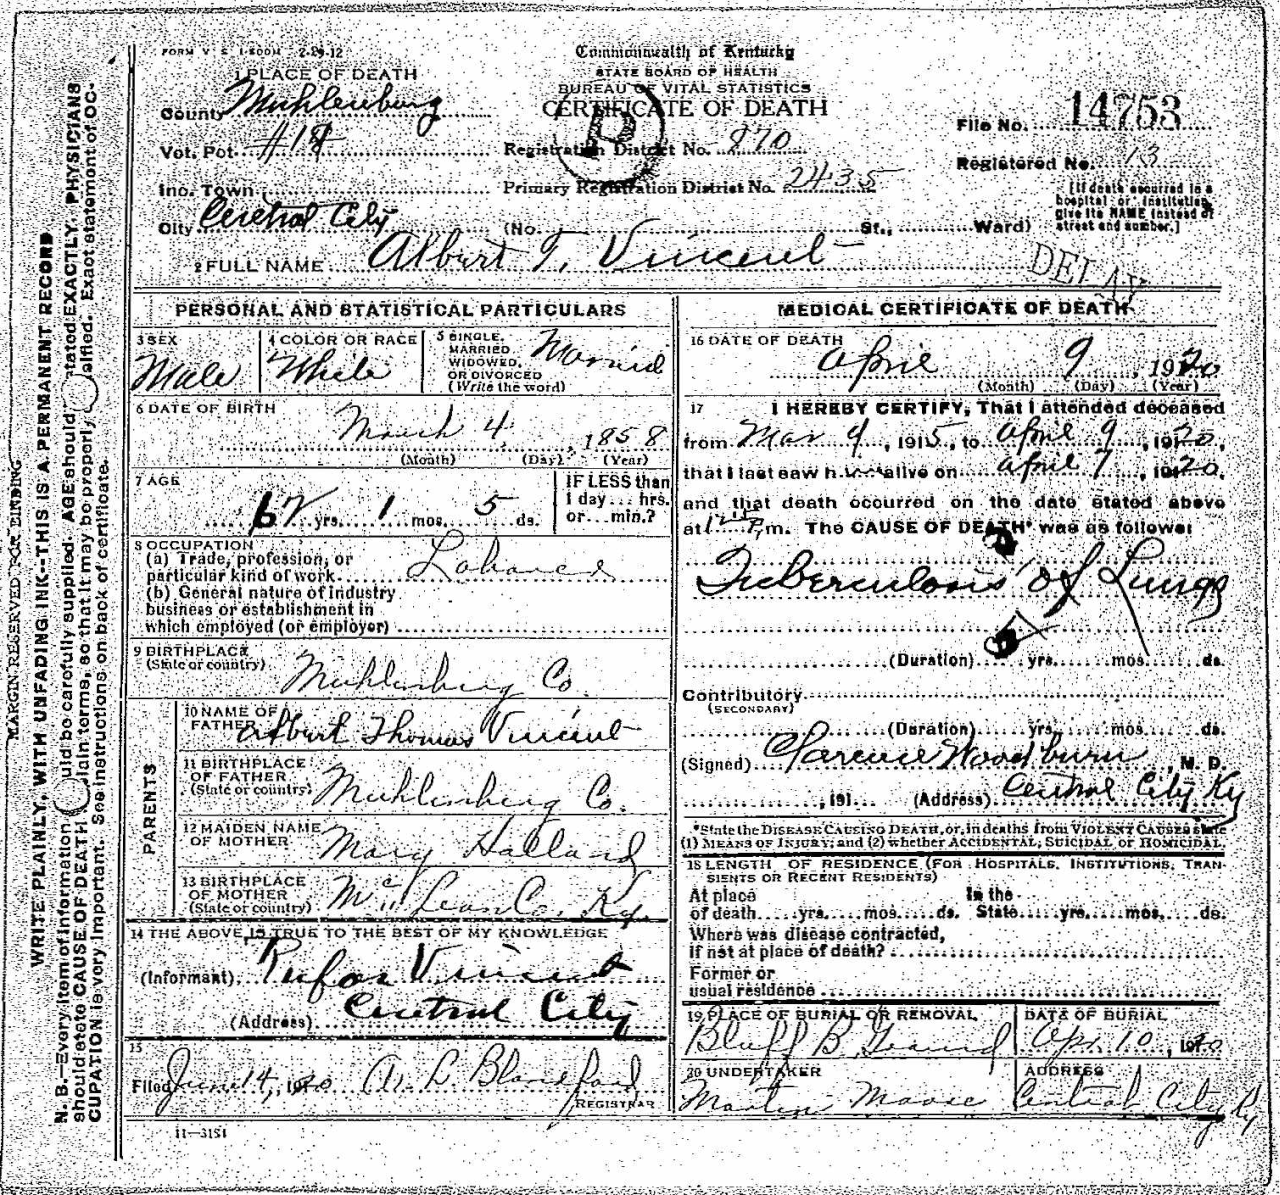 FORM V. S. 1-500M 2-28-12
Commonwealth of Kentucky
STATE BOARD OF HEALTH
BUREAU OF VITAL STATISTICS
CERTIFICATE OF DEATH
1 PLACE OF DEATH
County Muhlenburg
Vot. Pct. #18
Inc. Town
City Central City
Registration District No. 870
Primary Registration District No. 2435
(No. St., Ward)
File No. 14753
Registered No. 13
[If death occurred in a
hospital or institution,
give its NAME instead of
street and number.]
D
DELAY
2 FULL NAME Albert T. Vincent
PERSONAL AND STATISTICAL PARTICULARS
3 SEX
Male
4 COLOR OR RACE
White
5 SINGLE,
MARRIED
WIDOWED,
OR DIVORCED
(Write the word)
Married
6 DATE OF BIRTH
March 4, 1858
(Month) (Day) (Year)
7 AGE
62 yrs. 1 mos. 5 ds.
IF LESS than
1 day... hrs.
or... min.?
8 OCCUPATION
(a) Trade, profession, or
particular kind of work Laborer
(b) General nature of industry
business or establishment in
which employed (or employer)
9 BIRTHPLACE
(State or country)
Muhlenberg Co.
PARENTS
10 NAME OF
FATHER Albert Thomas Vincent
11 BIRTHPLACE
OF FATHER
(State or country)
Muhlenberg Co.
12 MAIDEN NAME
OF MOTHER
Mary Holland
13 BIRTHPLACE
OF MOTHER
(State or country)
McLean Co. Ky.
14 THE ABOVE IS TRUE TO THE BEST OF MY KNOWLEDGE
(Informant) Rufos Vincent
(Address) Central City
15
Filed June 14, 1920 A. L. Blandford
REGISTRAR
11-3151
MEDICAL CERTIFICATE OF DEATH
16 DATE OF DEATH
April 9, 1920
(Month) (Day) (Year)
17 I HEREBY CERTIFY, That I attended deceased
from Mar 9, 1915, to April 9, 1920,
that I last saw h alive on April 7, 1920,
and that death occurred on the date stated above
at P.m. The CAUSE OF DEATH* was as follows:
Tuberculosis of Lungs
(Duration) yrs. mos. ds.
Contributory
(SECONDARY)
(Duration) yrs. mos. ds.
(Signed) Clarence Woodburn, M. D.
, 191... (Address) Central City Ky
*State the DISEASE CAUSING DEATH, or, in deaths from VIOLENT CAUSES state
(1) MEANS OF INJURY; and (2) whether ACCIDENTAL, SUICIDAL or HOMICIDAL.
18 LENGTH OF RESIDENCE (FOR HOSPITALS, INSTITUTIONS, TRAN-
SIENTS OR RECENT RESIDENTS)
At place In the
of death yrs. mos. ds. State yrs. mos. ds.
Where was disease contracted,
if not at place of death?
Former or
usual residence
19 PLACE OF BURIAL OR REMOVAL
Bluff B. Ground
DATE OF BURIAL
Apr. 10, 1920
20 UNDERTAKER
Martin Moore
ADDRESS
Central City Ky
MARGIN RESERVED FOR BINDING
WRITE PLAINLY, WITH UNFADING INK--THIS IS A PERMANENT RECORD
N. B.—Every item of information ould be carefully supplied. AGE should tated EXACTLY. PHYSICIANS
should state CAUSE OF DEATH lain terms, so that it may be properly ssified. Exact statement of OC-
CUPATION is very important. See instructions on back of certificate.